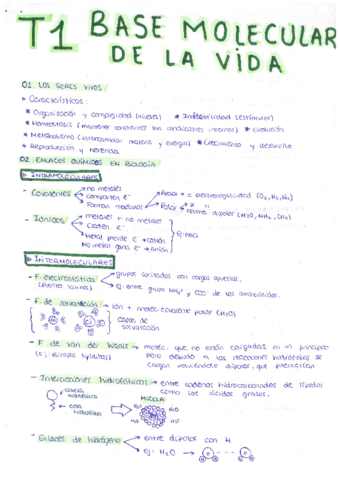 T1 BASE MOLECULAR
DE LA VIDA
01. LOS SERES VIVOS
Características:
* Organización y complejidad (niveles) * Irritabilidad (estímulos)
* Homeostasis (mantener constantes sus condiciones internas) * Evolución
* Metabolismo (intercambiar materia y energía) * Crecimiento y desarrollo
* Reproducción y herencia
02. ENLACES QUÍMICOS EN BIOLOGÍA
INTRAMOLECULARES
- Covalentes
no metales
comparten e-
Forman moléculas
Apolar → = electronegatividad (O2, H2, N2)
Polar → ≠
Forma dipolar (H2O, NH3, CH4)
- Iónicos
metales + no metales
Ceden e-
Metal pierde e- → catión
No metal gana e- → anión
Ej: NaCl
INTERMOLECULARES
- F. electrostática
(puentes salinos)
grupos ionizados con cargas opuestas.
Ej: entre grupo NH3+ y COO- de los aminoácidos.
- F. de solvatación → ión + moléc. covalente polar (H2O)
capas de
solvatación
- F. de van der Waals → moléc. que no están cargadas en un principio
pero debido a las
cargan volviéndose dipolos, que interaccionan
- Interacciones hidrofóbicas → entre cadenas hidrocarbonadas de lípidos
como los ácidos grasos.
cabeza
cola
hidrófoba
MICELA:
H2O
H2O
H2O
H2O
- Enlaces de hidrógeno
entre dipolos con H
Ej: H2O →